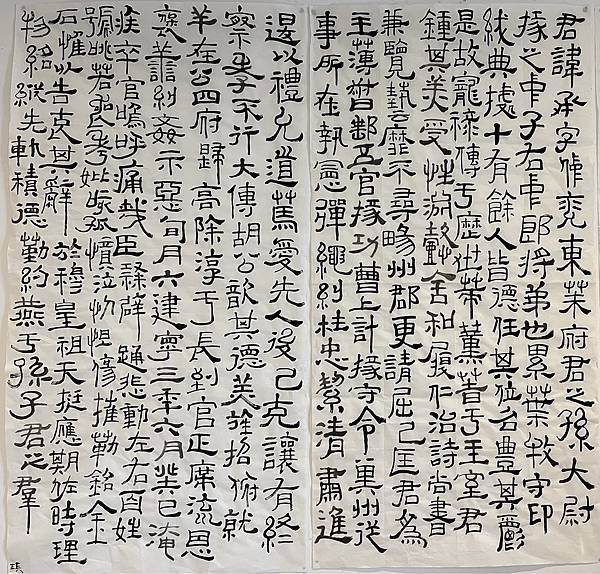 君諱承字仲兗東萊府君之孫大尉
掾之中子右中郎將弟也累葉牧守印
紱典據十有餘人皆德任其位名豐其爵
是故寵祿傳于歷世策薰著于王室君
鍾其美受性淵懿含和履仁治詩尚書
兼覽藝靡不尋暢州郡更請屈己匡君為
主薄督郵五官掾功曹上計掾守令冀州從
事所在執憲彈繩糾枉忠絜清肅進
退以禮允道篤愛先人後己克讓有終
察孝不行大傅胡公歆其德美旌招俯就
羊在公四府歸高除淳于長到官正席流恩
褒善糾姦示惡旬月六建寧三年六月癸巳淹
疾卒官嗚呼痛哉臣隸辟踊悲動左右百姓
號咷若喪考妣孤憤泣忉怛傷摧勒銘金
石惟以告哀其辭於穆皇祖天挺應期佐時理
物紹縱先軌積德勤約燕于孫子君之群